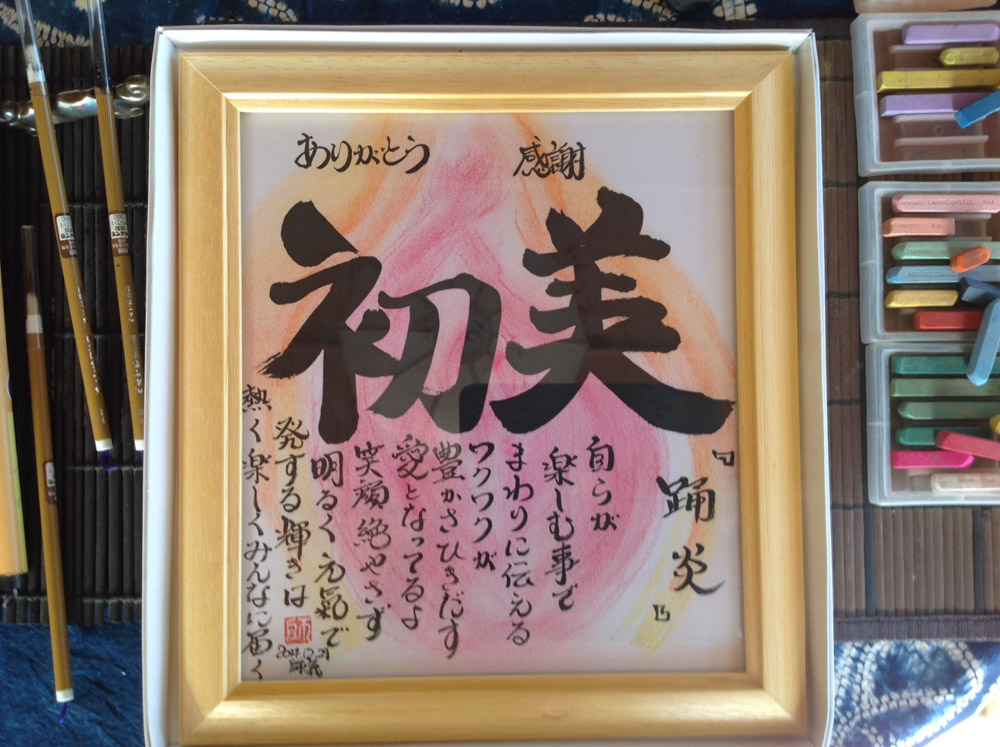 ありがとう 感謝
初美
『踊炎』
自らが
楽しむ事で
まわりに伝える
ワクワクが
豊かさひきだす
愛となってるよ
笑顔絶やさず
明るく元氣で
発する輝きは
熱く楽しくみんなに届く